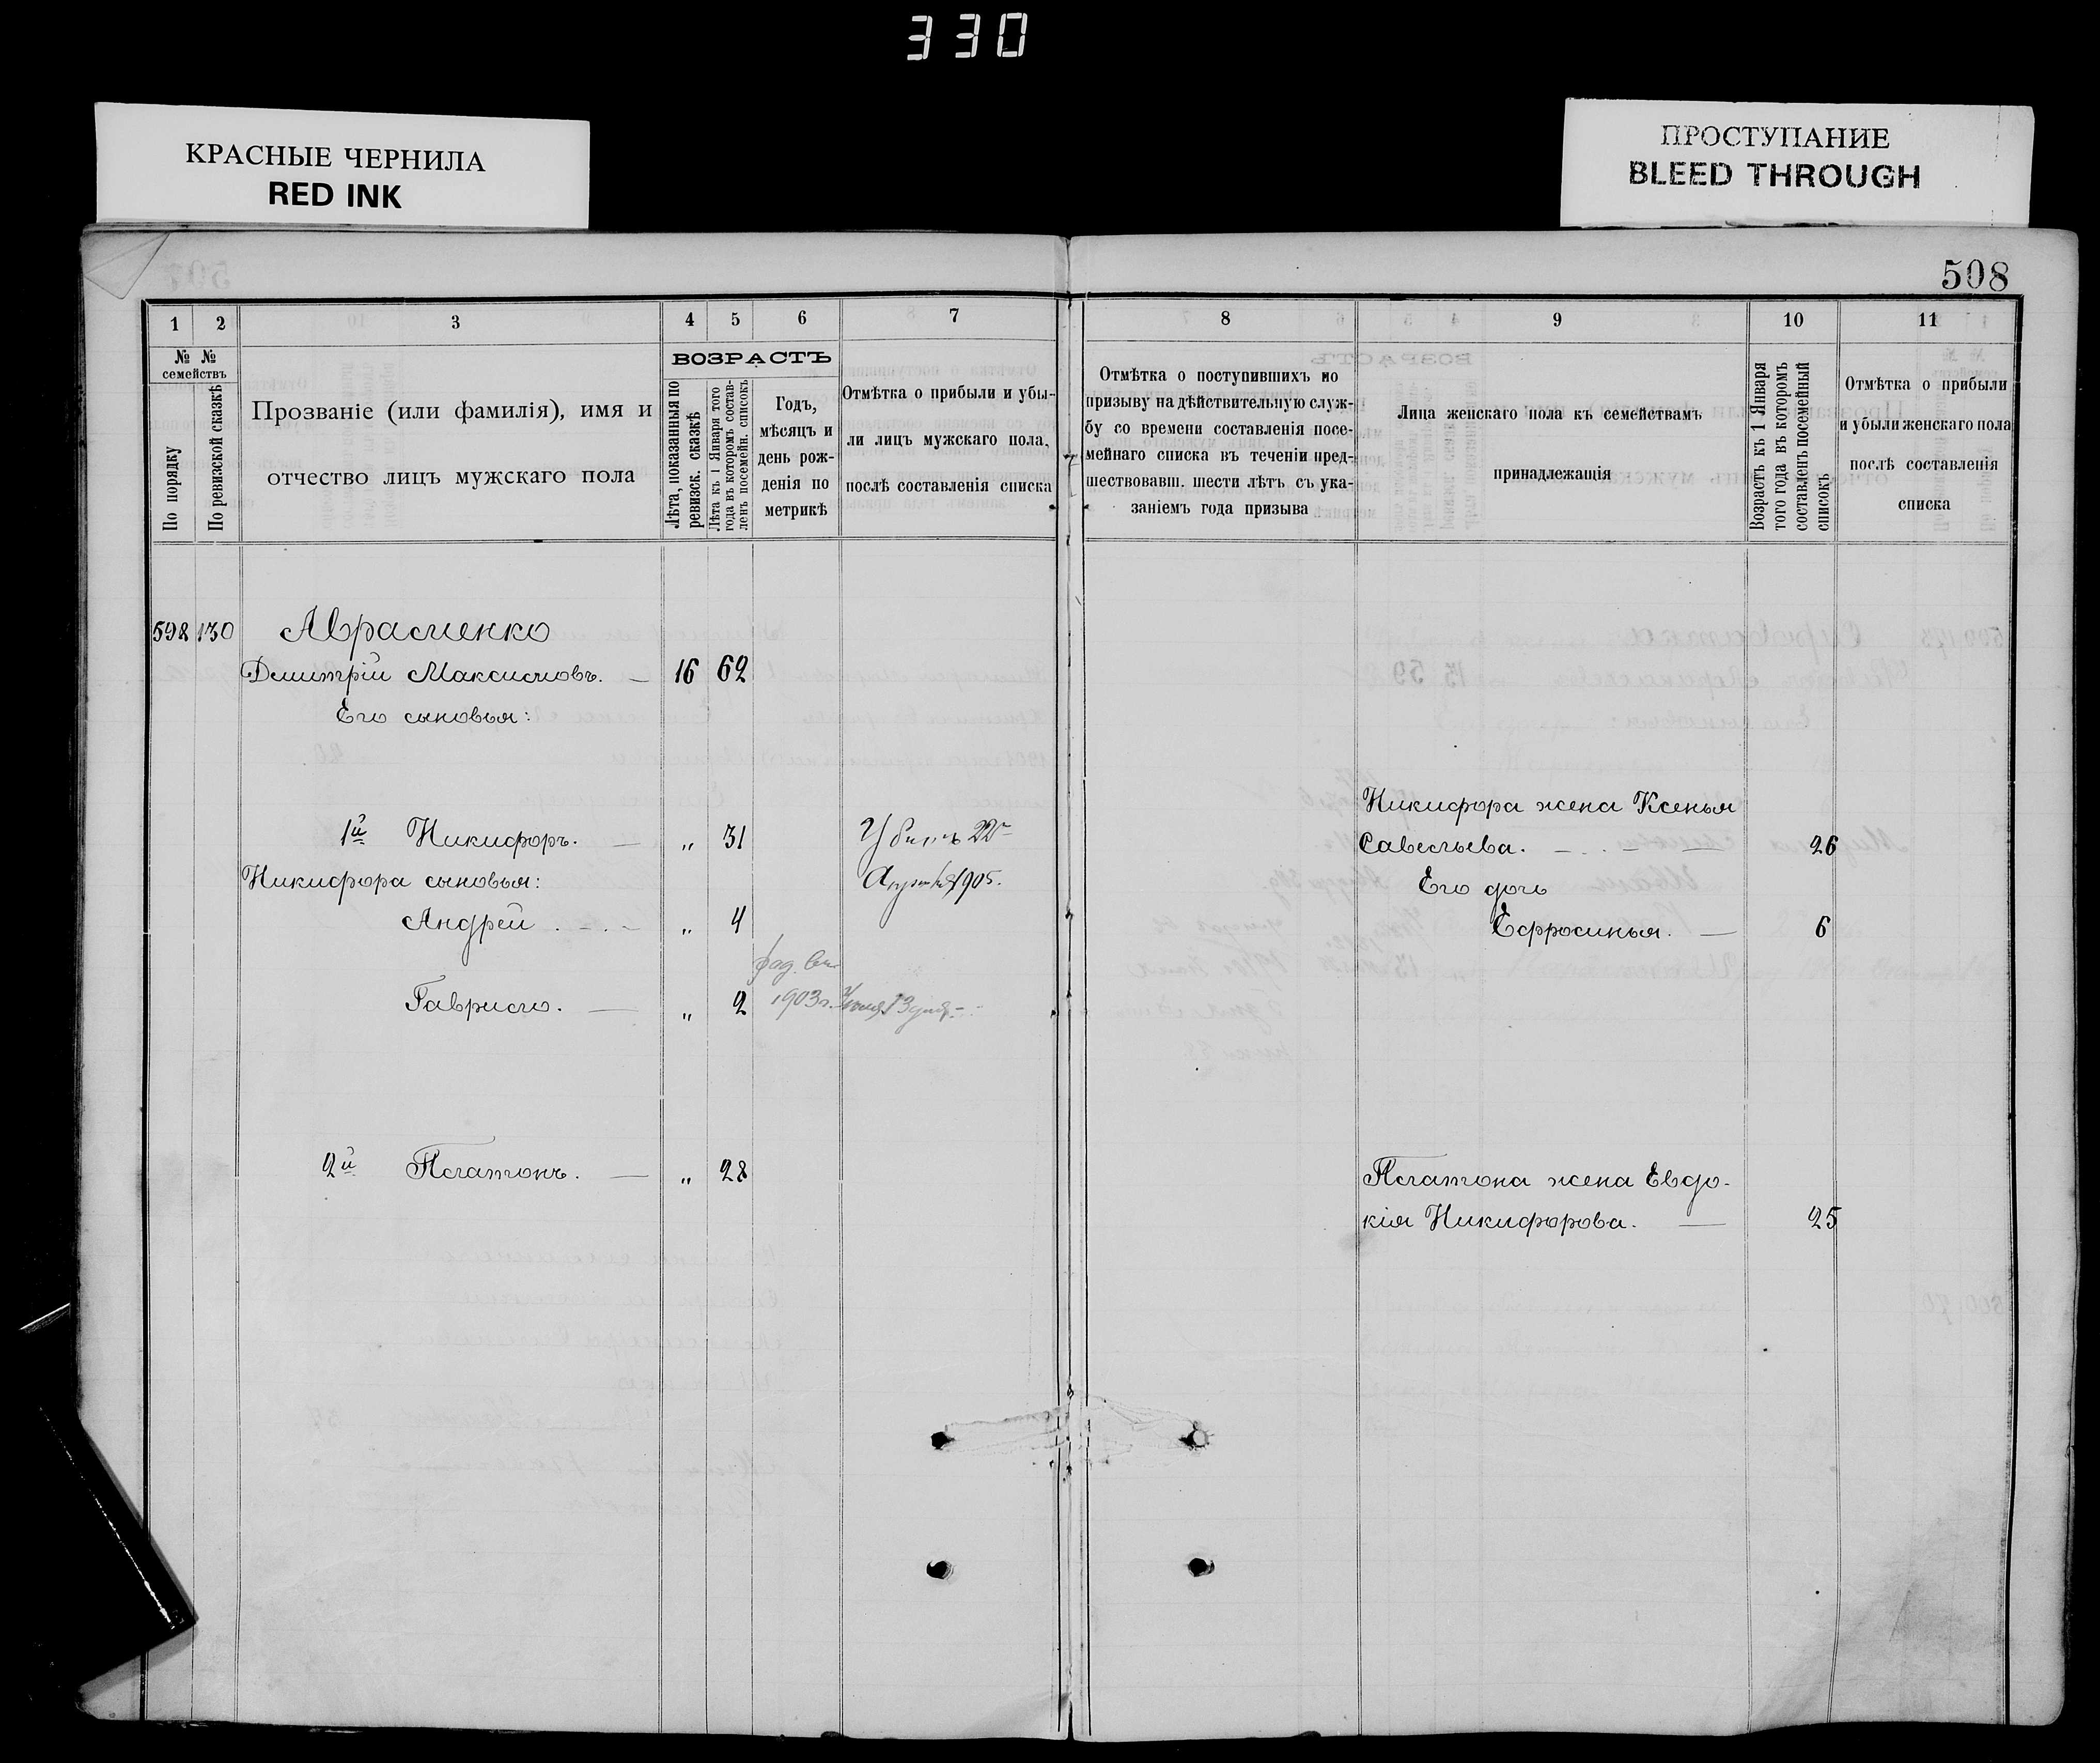 330
КРАСНЫЕ ЧЕРНИЛА
RED INK
ПРОСТУПАНИЕ
BLEED THROUGH
508
1 2 3 4 5 6 7 8 9 10 11
№ № семействъ
По порядку
По ревизской сказкѣ
Прозваніе (или фамилія), имя и
отчество лицъ мужскаго пола
ВОЗРАСТЪ
Лѣта, показанныя по
ревизск. сказкѣ
Лѣта къ 1 Января того
года въ которомъ состав-
ленъ посемейн. списокъ
Годъ,
мѣсяцъ и
день рож-
денія по
метрикѣ
Отмѣтка о прибыли и убы-
ли лицъ мужскаго пола,
послѣ составленія списка
Отмѣтка о поступившихъ по
призыву на дѣйствительную служ-
бу со времени составленія посе-
мейнаго списка въ теченіи пред-
шествовавш. шести лѣтъ съ ука-
заніемъ года призыва
Лица женскаго пола къ семействамъ
принадлежащія
Возрастъ къ 1 Января
того года въ которомъ
составленъ посемейный
списокъ
Отмѣтка о прибыли
и убыли женскаго пола
послѣ составленія
списка
598 130 Авраменко
Димитрій Максимовъ. — 16 62
Его сыновья:
Никифора жена Ксенья
1й Никифоръ. — „ 31 Убитъ 22
Савельева. — 26
Никифора сыновья: 1905.
Его дочь
Андрей . — . — „ 4
Ефросинья. — 6
Гаврило. — „ 2 1903г. 13
2й Платонъ. — „ 28
Платона жена Евдо-
кія Никифорова. — 25